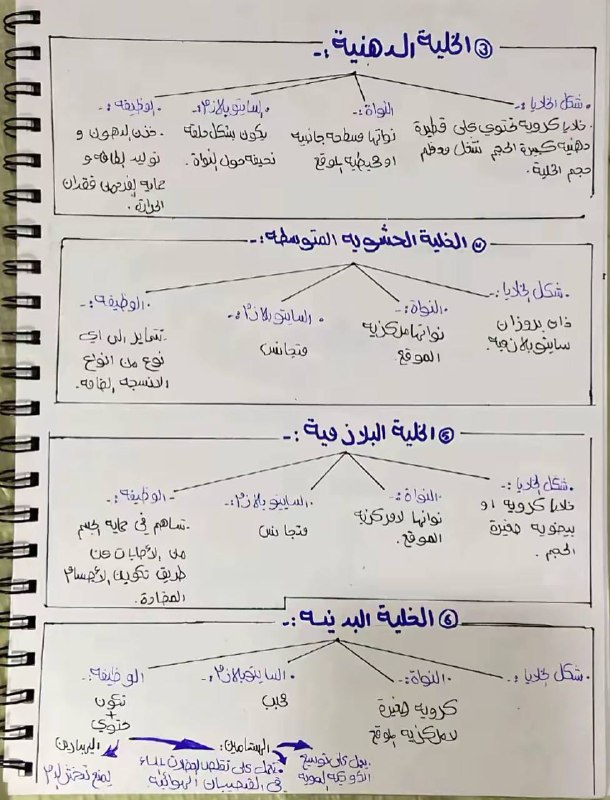 ③ الخلية الدهنية :-
• شكل الخلايا :-
خلايا كروية تحتوي على قطيرة
دهنية كبيرة الحجم تشغل معظم
حجم الخلية .
النواة :-
نواتها مسطحة جانبية
او محيطية الموقع
السايتوبلازم :-
يكون بشكل حلقة
نحيفة حول النواة .
الوظيفة :-
خزن الدهون و
توليد الطاقة و
حماية الجسم من فقدان
الحرارة .
الخلية الحشوية المتوسطة :-
• شكل الخلايا :-
ذات بروزان
سايتوبلازمية .
• النواة :-
نواتها مركزية
الموقع .
• السايتوبلازم :-
متجانس
• الوظيفة :-
تتمايز الى اي
نوع من انواع
الانسجة الضامة .
⑤ الخلية البلازمية :-
• شكل الخلايا :-
خلايا كروية او
بيضوية صغيرة
الحجم .
• النواة :-
نواتها لامركزية
الموقع .
• السايتوبلازم :-
متجانس
- الوظيفة :-
تساهم في حماية الجسم
من الاصابات عن
طريق تكوين الأجسام
المضادة .
⑥ الخلية البدينة :-
• شكل الخلايا :-
كروية صغيرة
• النواة :-
لامركزية الموقع
• السايتوبلازم :-
محبب
الوظيفة :-
تكون
+
تحتوي
الهستامين :-
يعمل على توسيع
الأوعية الدموية
تعمل على تقلص العضلات الملساء
في القصيبات الهوائية
الهيبارين
يمنع تخثر الدم